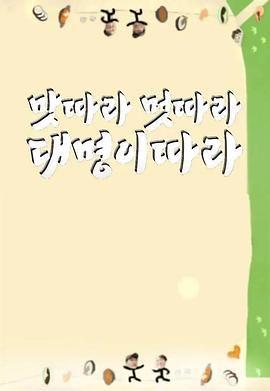 맛따라 멋따라
대명이따라